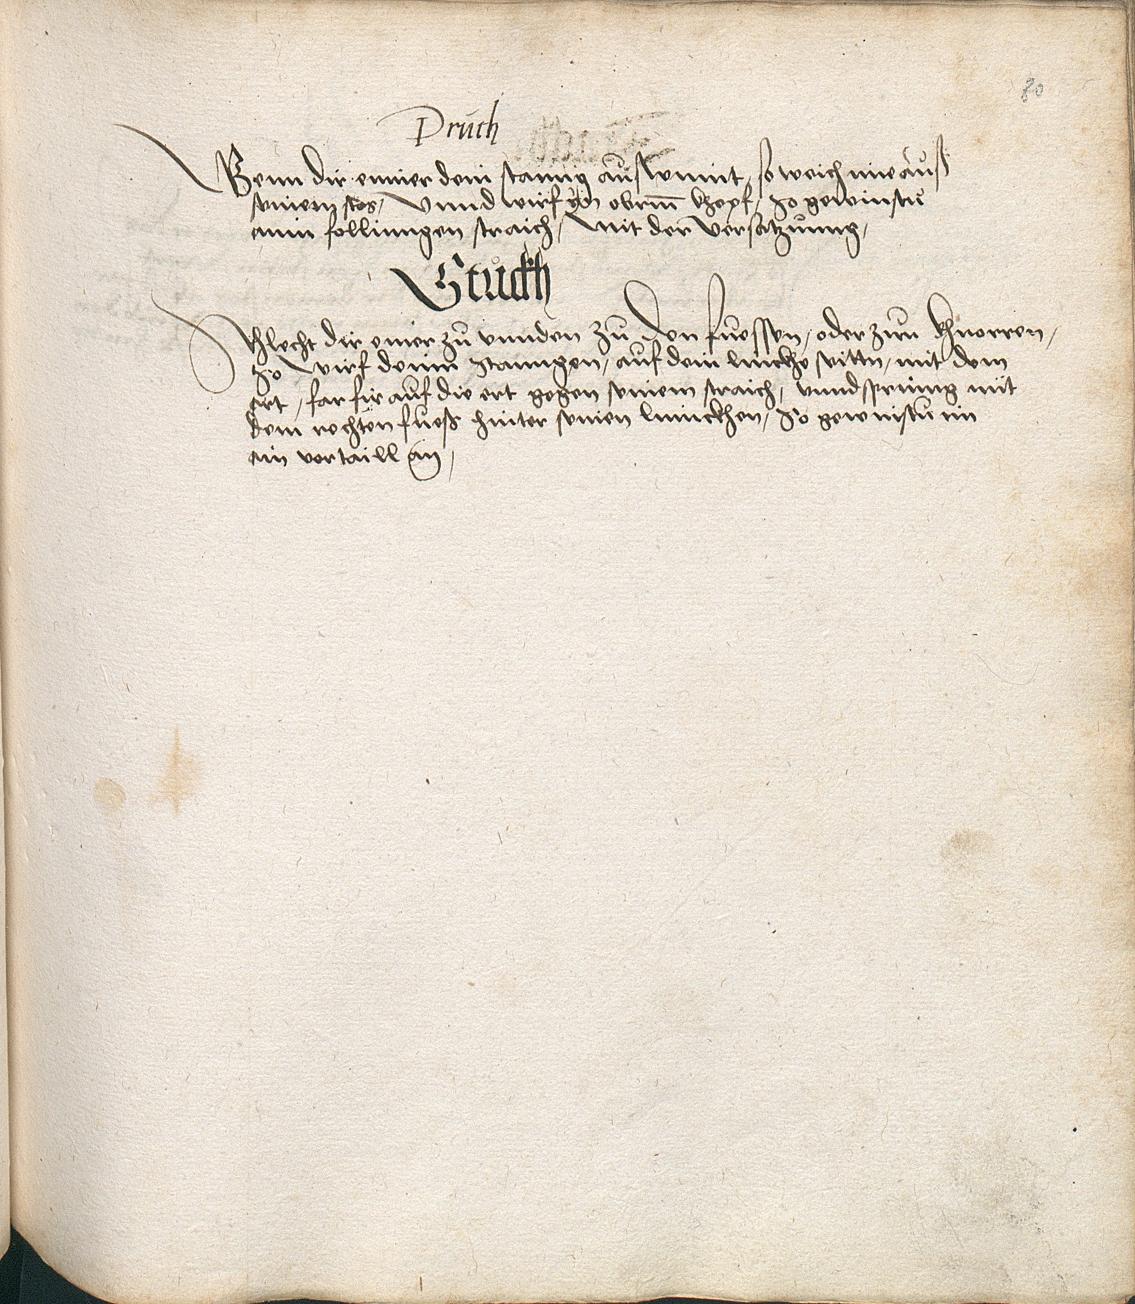 80
Pruch
Wenn dir einner dein stanng aus wennt, so weich nie aus
seinem stos, Vnnd wirf ybern kopf, so gewinstu
ainn follinngen straich, mit der Versatzunng,
Stuckh
Schlecht dir einer zu vnnden zu den fuessen, oder zun khnorren,
So wirf deinn stanngen, auf dein lincke seittn, mit dem
ort, far fir auf die ert gegen seinem straich, vnnd spring mit
dem rechten fuess hinter seinen linnckhen, so gewinstu im
ain vortaill an,